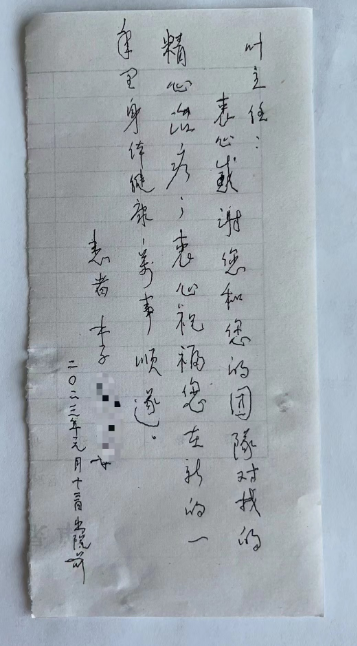 叶主任：
衷心感谢您和您的团隊对我的
精心治疗；衷心祝福您在新的一
年里身体健康；萬事順遂。
患者 李
二〇二三年元月十 日出院前